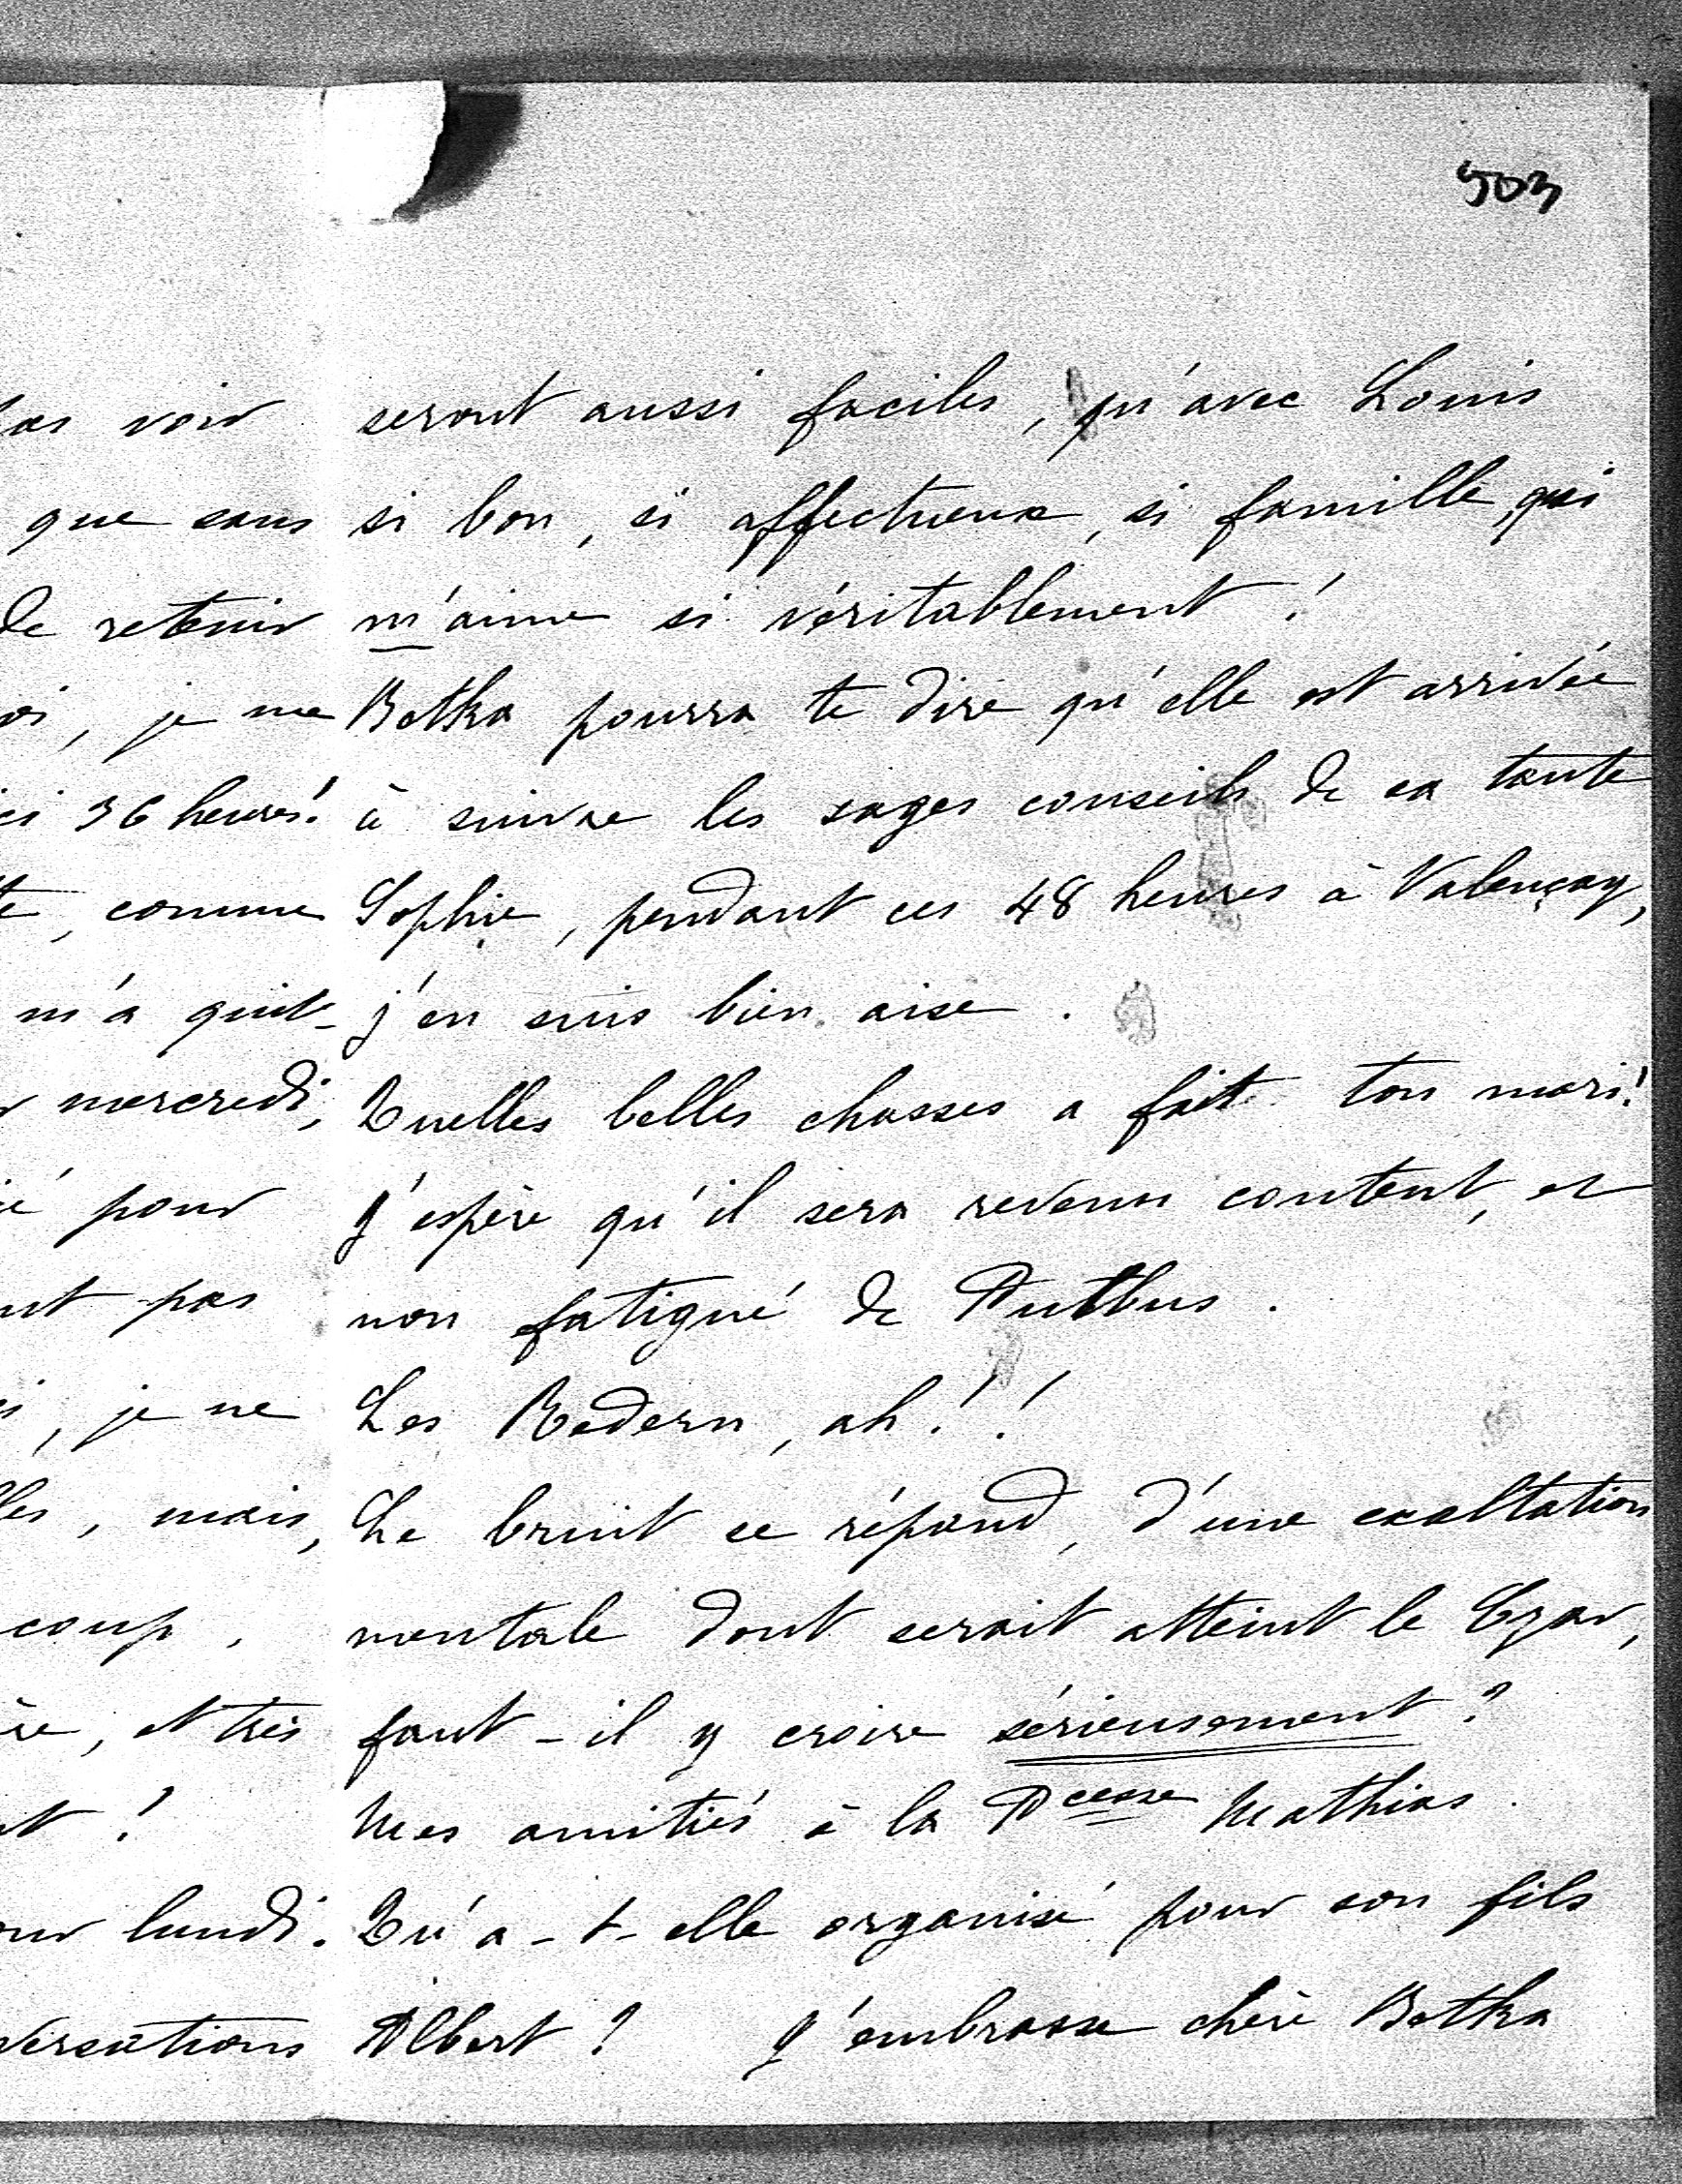 503
voir
que sans
de retenir
, je me
36 heures!
, comme
m'a quit-
mercredi,
pour
pas
, je ne
, mais,
coup.
, et très
!
lundi.
versations
seront aussi faciles, qu'avec Louis
si bon, si affectueux, si famille, qui
m'aime si véritablement!
Betka pourra te dire qu'elle est arrivée
à suivre les sages conseils de sa tante
Sophie, pendant ces 48 heures à Valençay,
j'en suis bien aise.
Quelles belles chasses a fait ton mari!
J'espère qu'il sera revenu content, et
non fatigué de Putbus.
Les Redern, ah!!
Le bruit se répand, d'une exaltation
mentale dont serait atteint le Czar,
faut-il y croire sérieusement?
Mes amitiés à la Pcesse Mathias.
Qu'a-t-elle organisé pour son fils
Albert? J'embrasse chère Betka